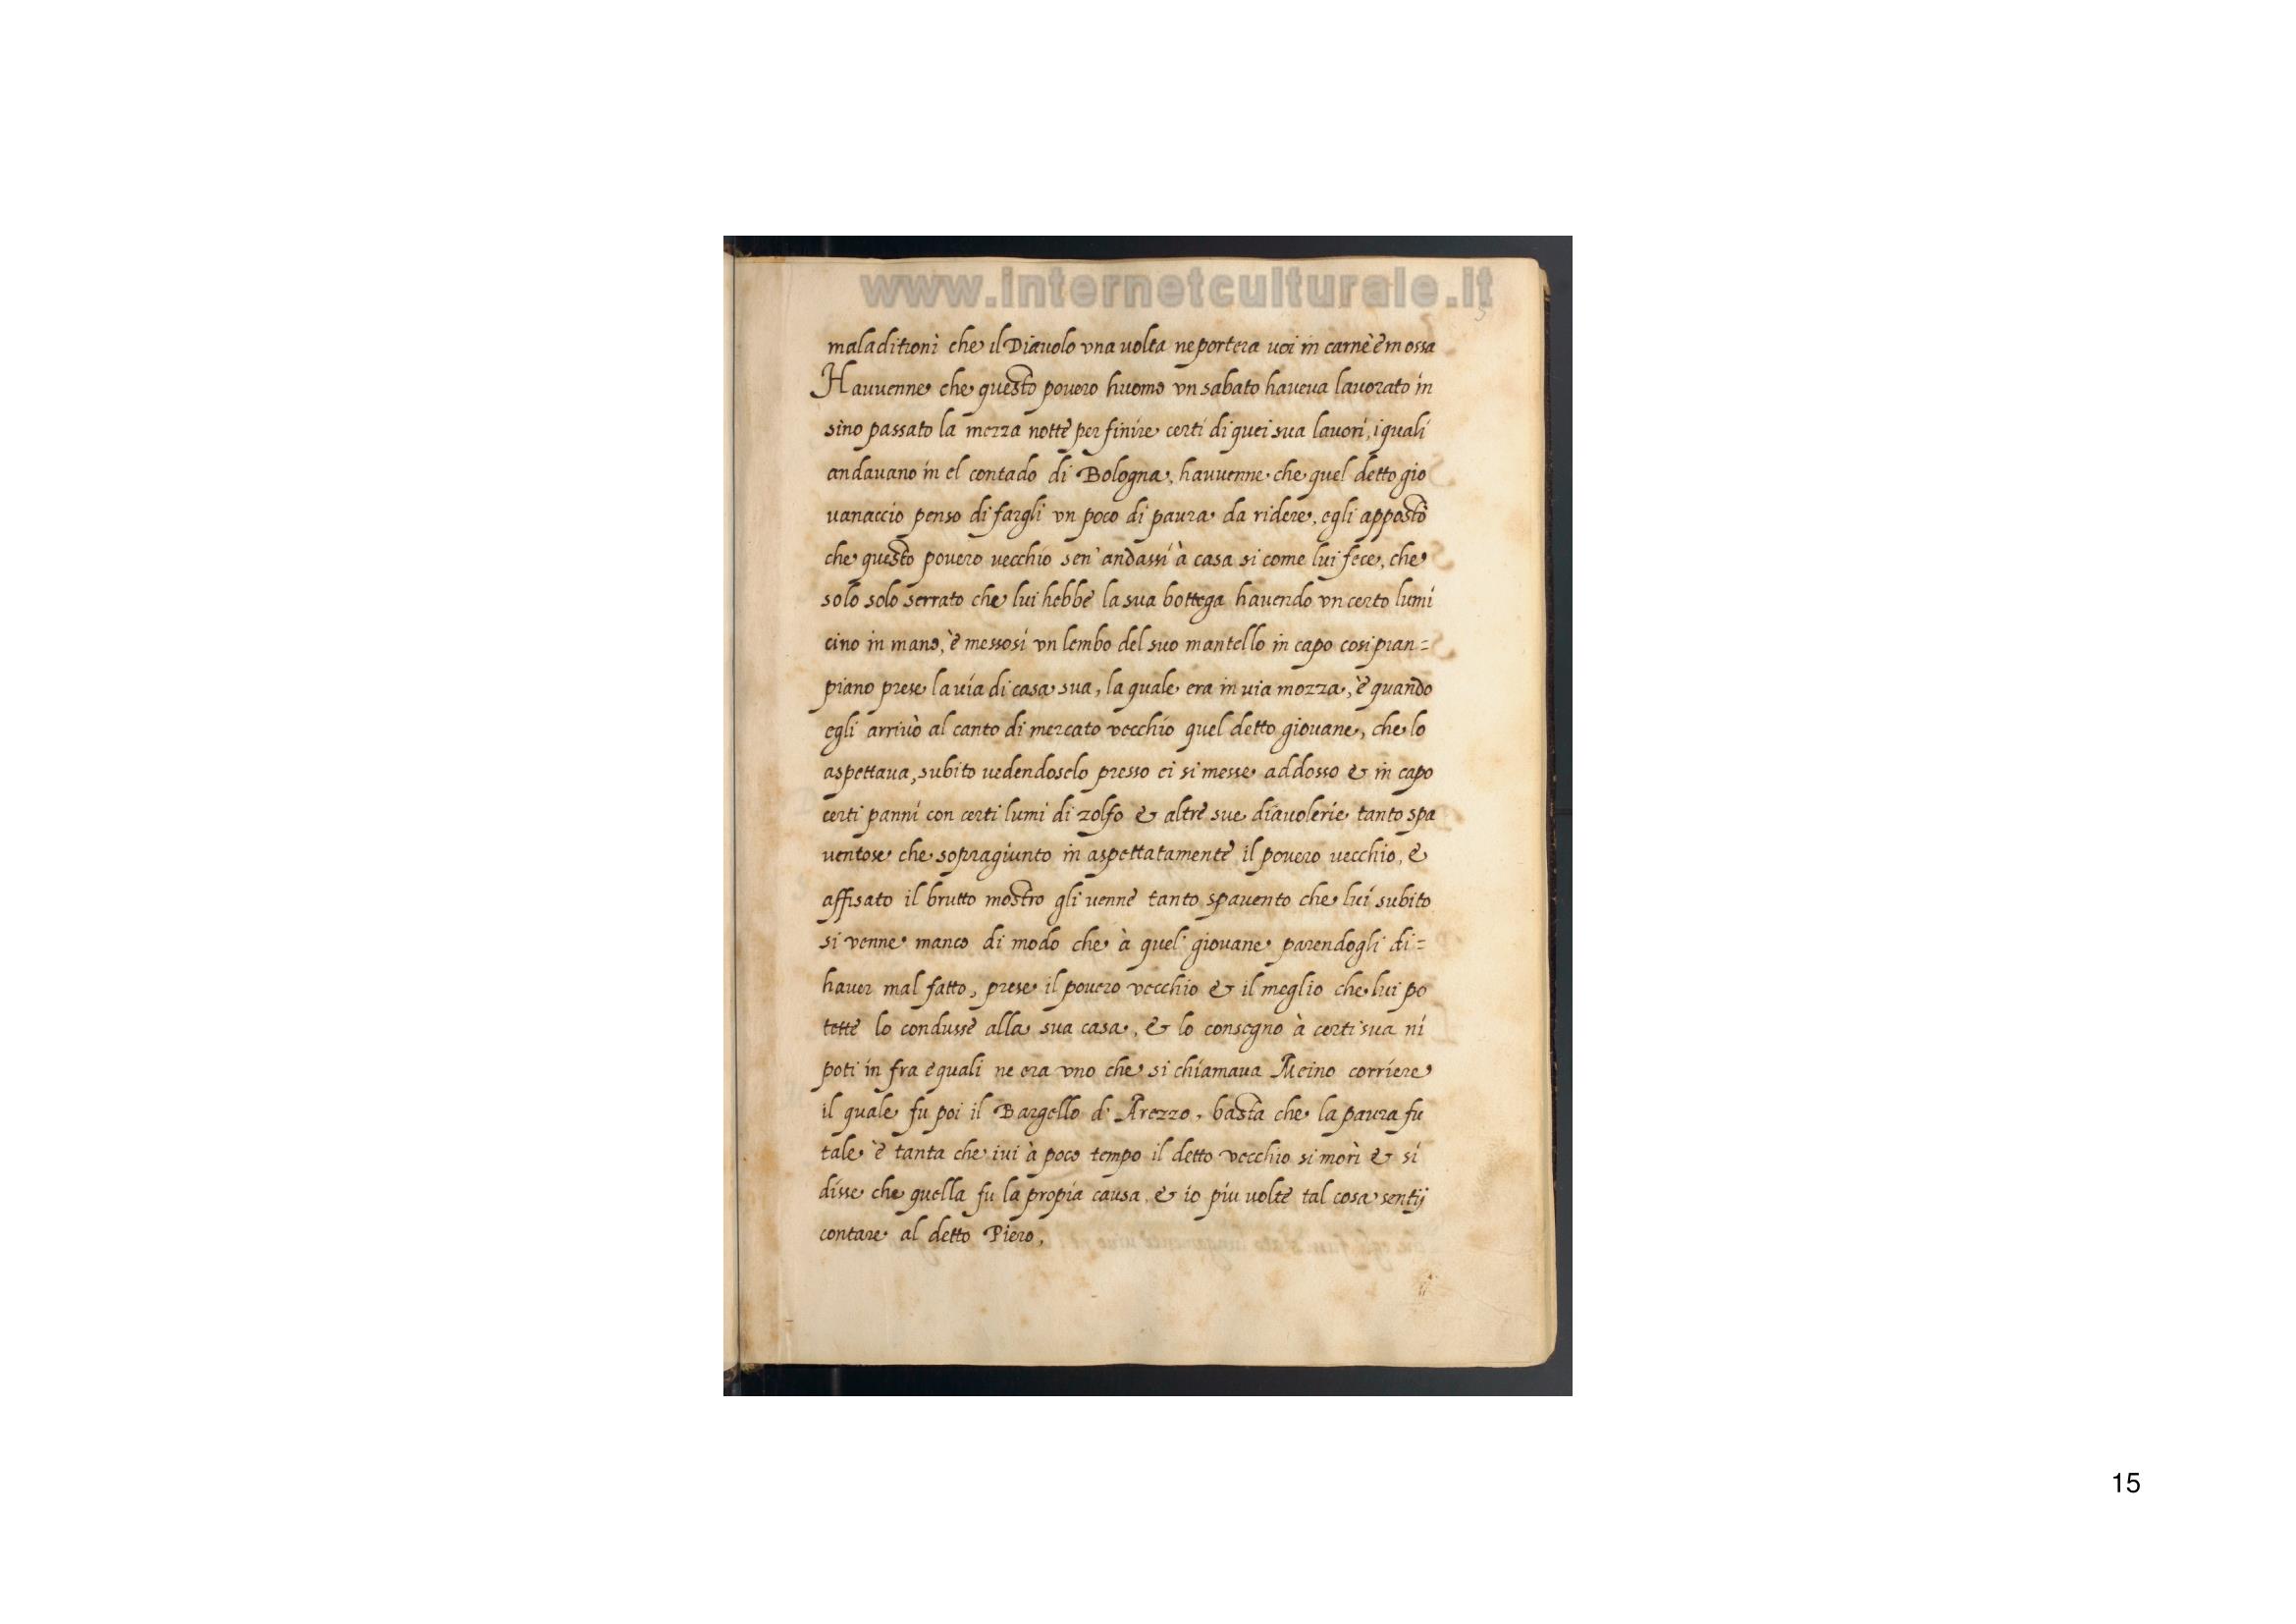 www.internetculturale.it
5
maladitioni che il Diauolo vna uolta ne portera uoi in carne è m ossa
Hauuenne che questo pouero huomo vn sabato haueua lauorato in
sino passato la mezza notte per finire certi di quei sua lauori, i quali
andauano in el contado di Bologna, hauuenne che quel detto gio
uanaccio penso di fargli vn poco di paura da ridere, egli appostò
che questo pouero uecchio sen' andassi à casa si come lui fece, che
solo solo serrato che lui hebbe la sua bottega hauendo vn certo lumi
cino in mano, è messosi vn lembo del suo mantello in capo cosi pian=
piano prese la uia di casa sua, la quale era in uia mozza, è quando
egli arriuò al canto di mercato vecchio quel detto giouane, che lo
aspettaua, subito uedendoselo presso ei si messe addosso & in capo
certi panni con certi lumi di zolfo & altre sue diauolerie tanto spa
uentose che sopragiunto in aspettatamente il pouero uecchio, &
affisato il brutto mostro gli uenne tanto spauento che lui subito
si venne manco di modo che à quel giouane parendogli di=
hauer mal fatto, prese il pouero vecchio & il meglio che lui po
tette lo condusse alla sua casa, & lo consegno à certi sua ni
poti in fra e quali ne era vno che si chiamaua Meino corriere
il quale fu poi il Bargello d' Arezzo, basta che la paura fu
tale è tanta che iui à poco tempo il detto vecchio si morì & si
disse che quella fu la propia causa, & io piu uolte tal cosa sentij
contare al detto Piero,
15